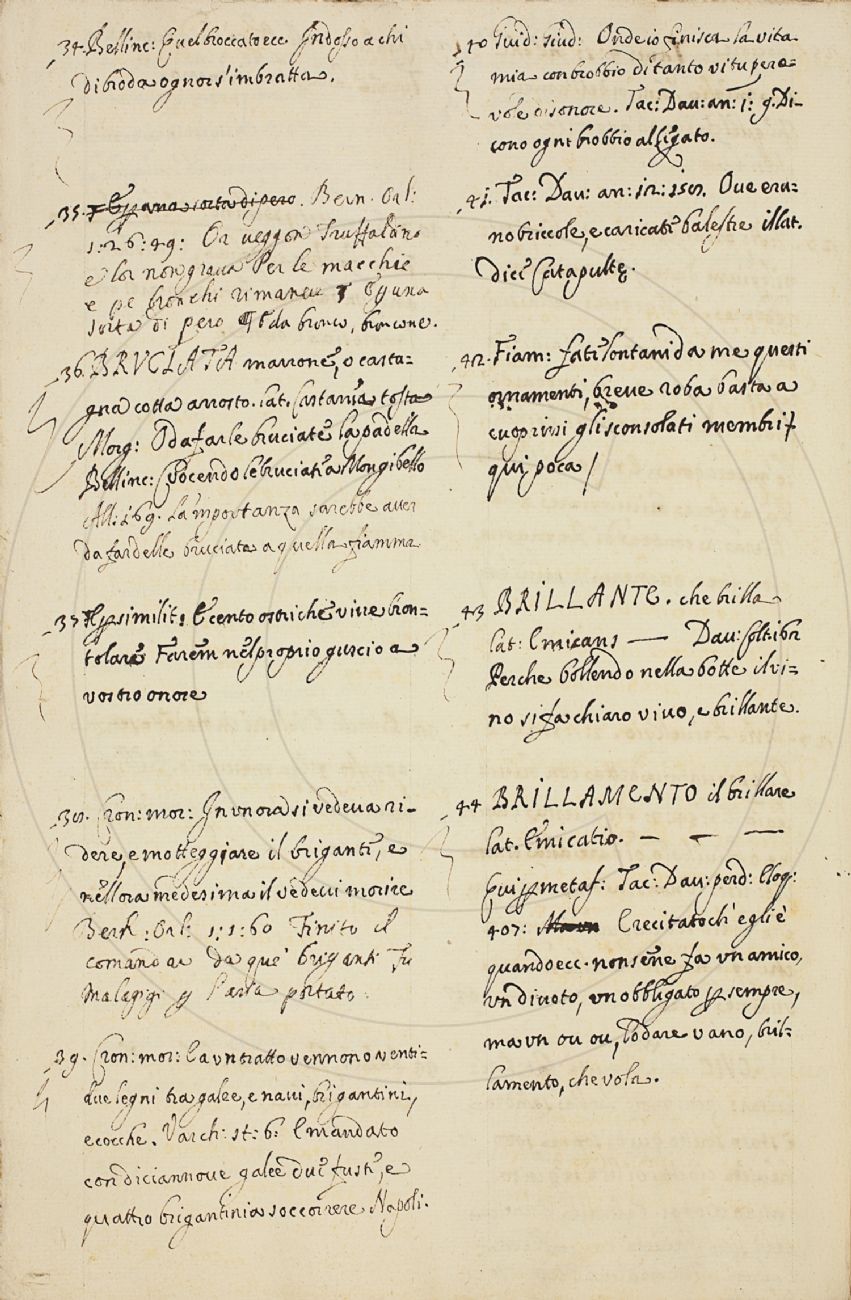 34. Bellinc: Quel broccato ecc. Indosso a chi
di broda ognor s'imbratta.
35. È una sorta di pero. Bern. Orl:
1:26:49: Or veggon Truffaldino
e lor non grava Per le macchie
e pe bronchi rimane È una
sorta di pero da bronco, broncone.
36. BRVCIATA marrone, o casta=
gna cotta arrosto. lat. Castanea tosta
Morg: O da far le bruciate la padella
Bellinc: Cocendo le bruciate a Mongibello
All: 169. La importanza sarebbe aver
da far delle bruciate a quella fiamma
37. similit: E cento ostriche vive bron=
tolare Farem nel proprio guscio a
vostro onore
38. Cron: mor: In un ora si vedeva ri-
dere, e motteggiare il briganti, e
nell ora medesima il vedevi morire
Bern: Orl: 1:1:60 Finito il
comandar da que' briganti Fu
Malagigi portato.
39. Cron: mor: La un tratto vennono venti=
due legni tra galee, e navi, brigantini,
e cocche. Varch: st: 6: E mandato
con diciannove galee due fuste, e
quattro brigantini a soccorrere Napoli.
40 Guid: giud: Onde io finisca la vita
mia con brobbio di tanto vitupere=
vole disonore. Tac: Dav: an: 1: 9. Di-
cono ogni brobbio al figato.
41. Tac: Dav: an: 12: 158. Ove era=
no briccole, e caricate balestre il lat.
dice Catapulte.
42. Fiam: fate lontani da me questi
ornamenti, breve roba basta a
cuoprirsi gli sconsolati membri
qui poca /
43 BRILLANTE. che brilla
lat: Emicans — Dav: Coltib:
Perche bollendo nella botte il vi=
no si fa chiaro vivo, e brillante.
44 BRILLAMENTO il brillare
lat. Emicatio. — — —
Qui metaf: Tac: Dav: perd: Eloq:
407: E recitato ch' egli è
quando ecc. non sene fa un amico,
un divoto, un obbligato sempre,
ma un ou ou, lodare vano, bril=
lamento, che vola.